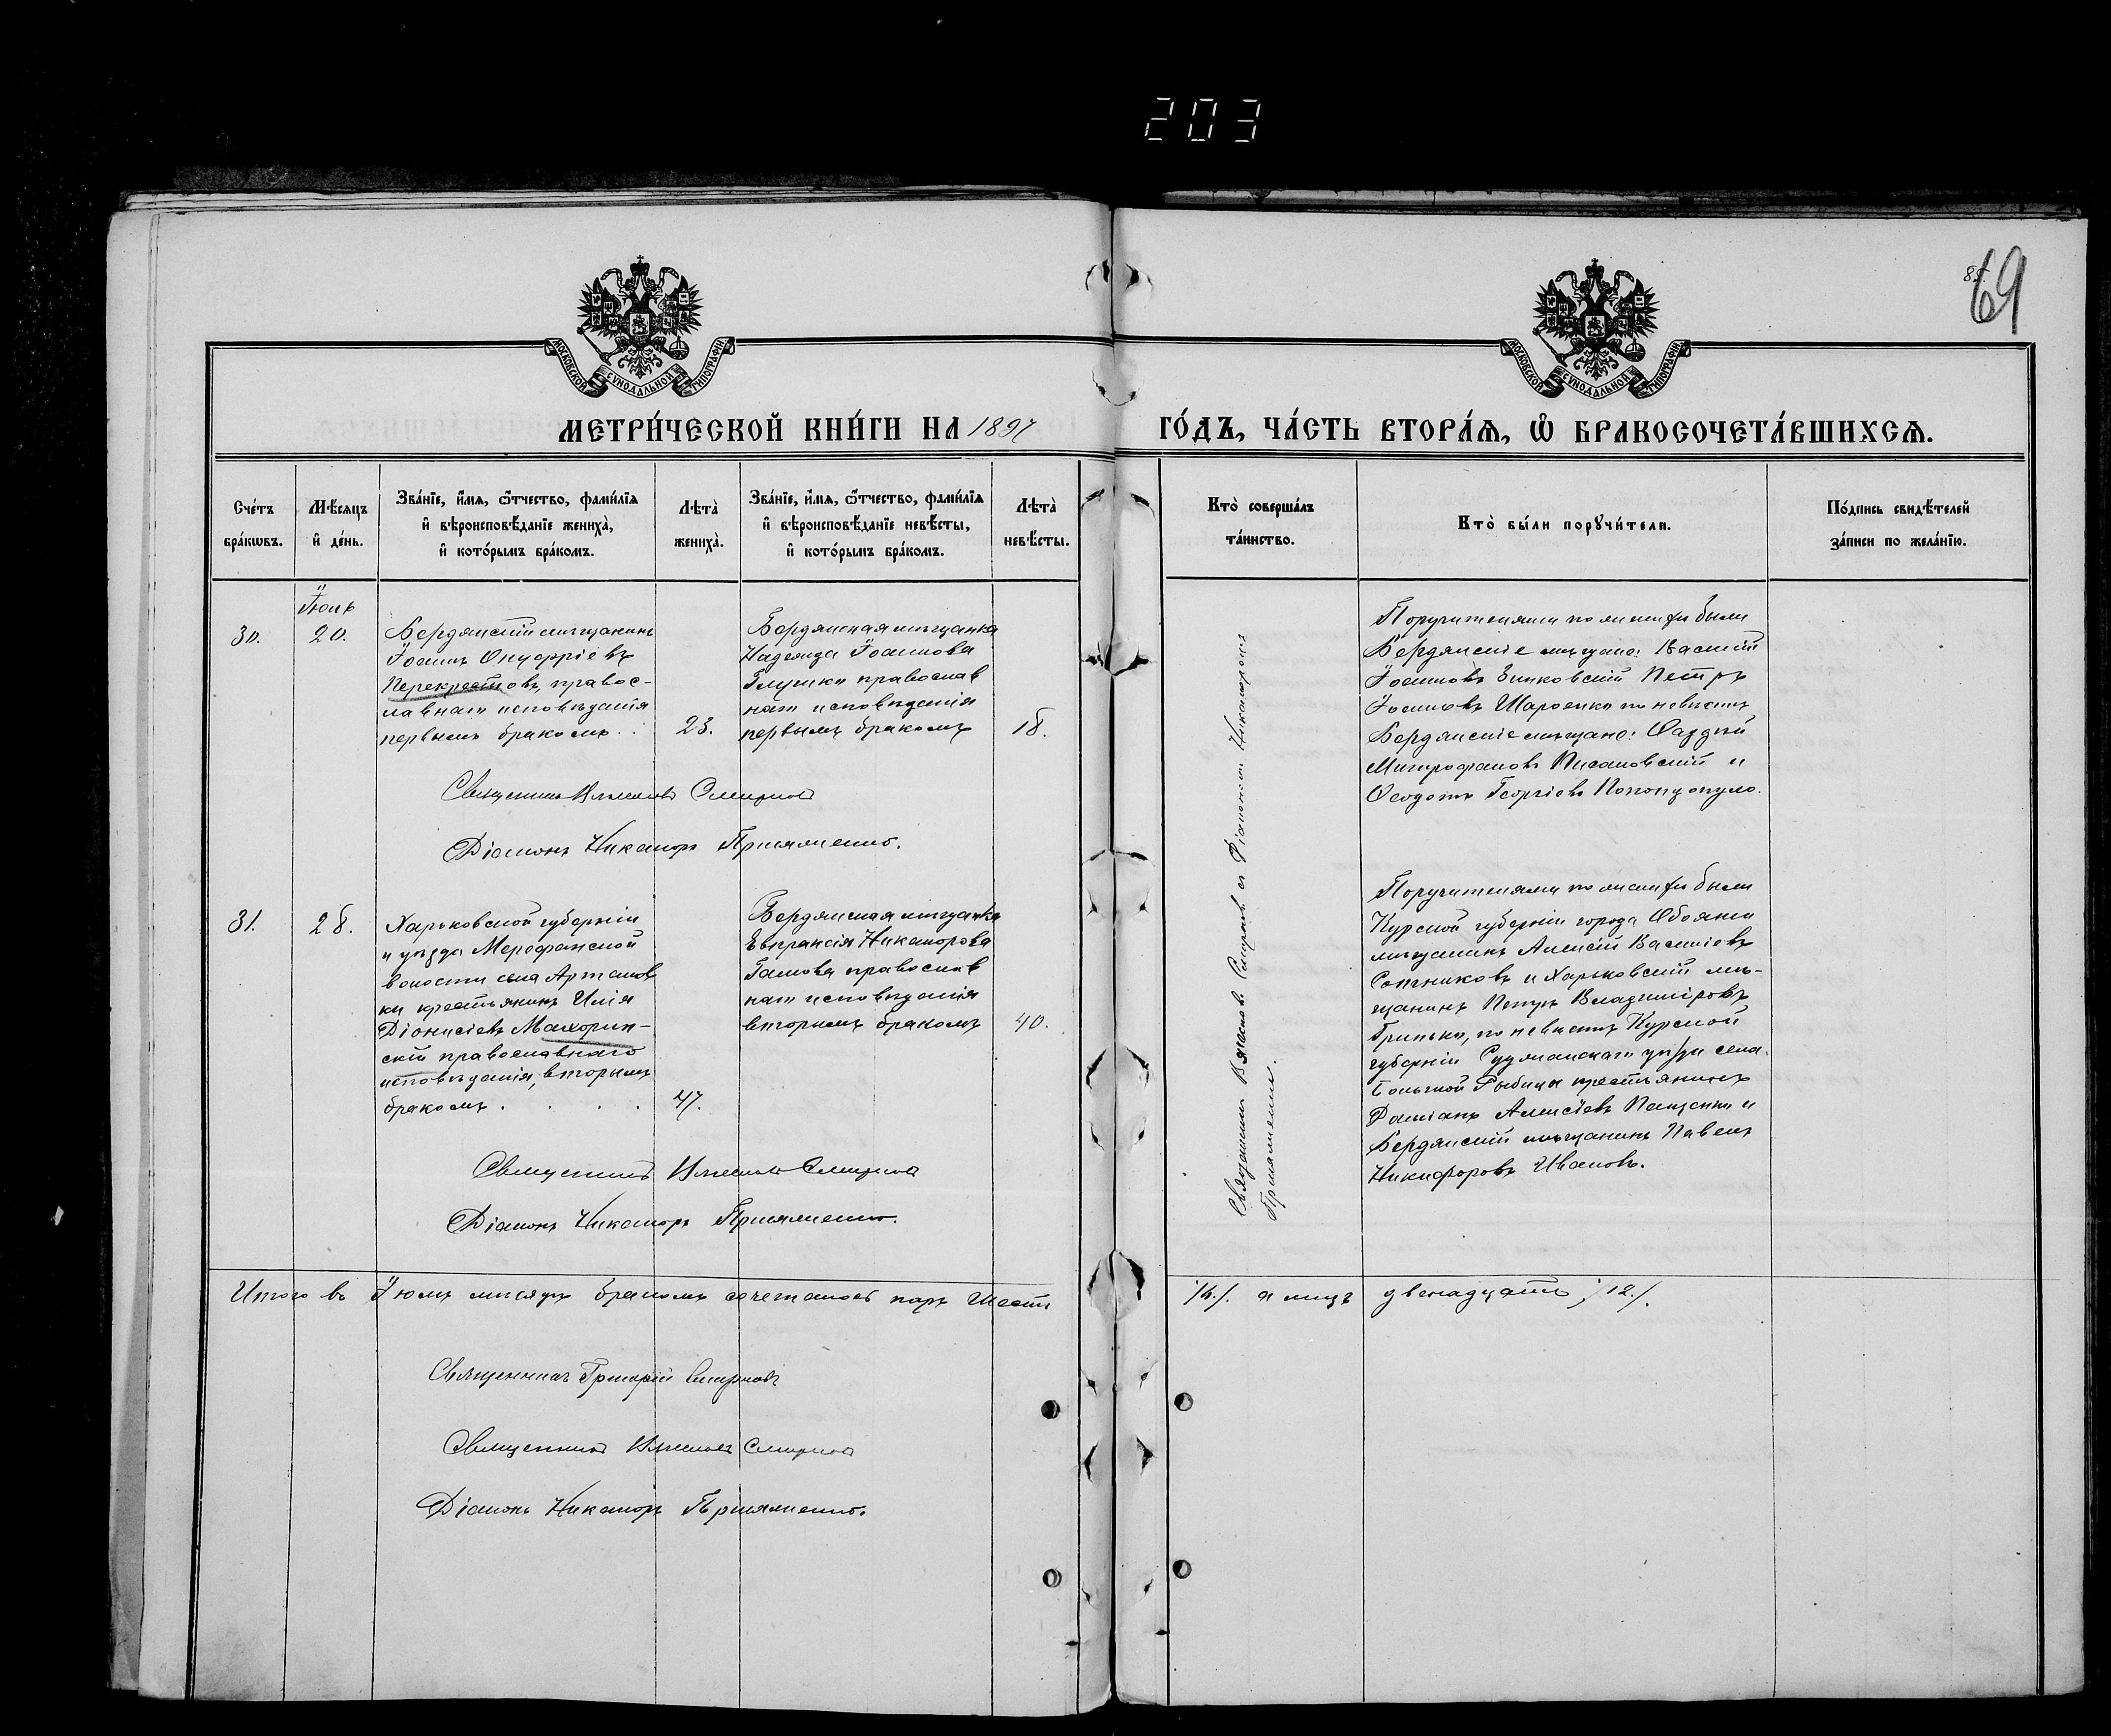 203
85.
69
МОСКОВСКОЙ СѴНОДАЛЬНОЙ ТИПОГРАФІИ
МОСКОВСКОЙ СѴНОДАЛЬНОЙ ТИПОГРАФІИ
МЕТРИ́ЧЕСКОЙ КНИ́ГИ НА 1897
ГО́ДЪ, ЧА́СТЬ ВТОРА́Ѧ, Ѽ БРАКОСОЧЕТА́ВШИХСѦ.
Сче́тъ
бра́кѡвъ.
Мѣ́сяцъ
и҆ де́нь.
Зва́нїе, и҆́мѧ, ѻ҆́тчество, фами́лїѧ
и҆ вѣроисповѣ́данїе жениха̀,
и҆ кото́рымъ бра́комъ.
Лѣта̀
жениха̀.
Зва́нїе, и҆́мѧ, ѻ҆́тчество, фами́лїѧ
и҆ вѣроисповѣ́данїе невѣ́сты,
и҆ кото́рымъ бра́комъ.
Лѣта̀
невѣ́сты.
Кто̀ соверша́лъ
та́инство.
Кто̀ бы́ли порꙋчи́тели.
По́дпись свидѣ́телей
за́писи по жела́нїю.
Іюль
30.
20.
Бердянскій мѣщанинъ
Іоаннъ Онуфріевъ
Перекрестовъ, правос-
лавнаго исповѣданія
первымъ бракомъ . .
23.
Бердянская мѣщанка
Надежда Іоаннова
православ
наго исповѣданія
первымъ бракомъ
18.
Поручителями по женихѣ были
Бердянскіе мѣщане: Василій
Іоанновъ Зинковскій Петръ
Іоанновъ по невѣстѣ
Бердянскіе мѣщане: Фаддѣй
Митрофановъ Писановскій и
Ѳеодотъ Георгіевъ
Священникъ Смирновъ
Діаконъ Никаноръ
31.
28.
Харьковской губерніи
и уѣзда Мерефянской
волости села Артемов
ки крестьянинъ Илія
Діонисіевъ Махорин-
скій православнаго
исповѣданія, вторымъ
бракомъ . . . .
47.
Бердянская мѣщанка
Евпраксія Никанорова
православ
наго исповѣданія
вторымъ бракомъ
40.
Поручителями по женихѣ были
Курской губерніи города Обояни
мѣщанинъ Алексій Василіевъ
Сотниковъ и Харьковскій мѣ-
щанинъ Петръ Владиміровъ
Гринько, по невѣстѣ Курской
губерніи Суджанскаго уѣзда села
Большой Рыбицы крестьянинъ
Даміанъ Алексіевъ Пащенко и
Бердянскій мѣщанинъ Павелъ
Никифоровъ Ивановъ.
Священникъ Смирновъ съ Діакономъ Никаноромъ
Священникъ Смирновъ
Діаконъ Никаноръ
Итого въ Іюлѣ мѣсяцѣ бракомъ сочеталось паръ шесть
/6./ а лицъ двенадцать, /12./
Священникъ Григорій Смирновъ
Священникъ Смирновъ
Діаконъ Никаноръ